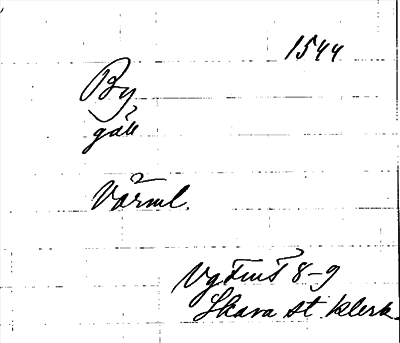 1544
By
gäll
Värml.
Vg Fmt 8-9
Skara st. klerk.